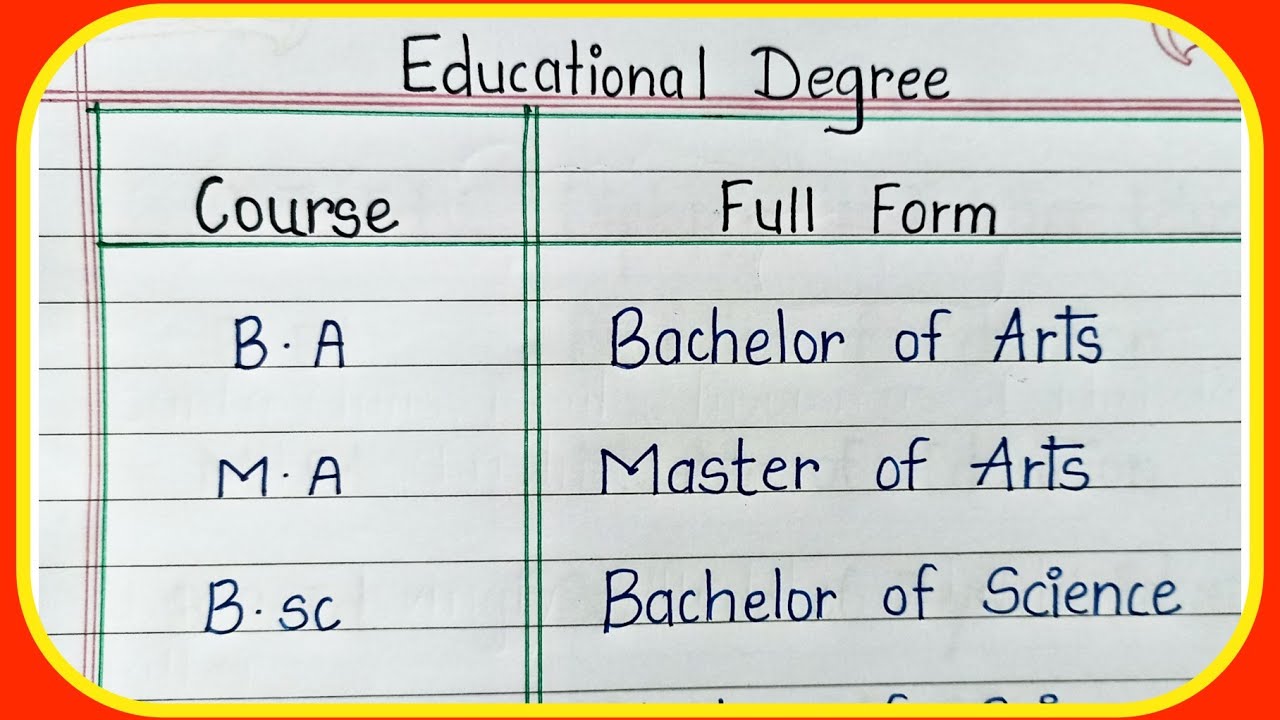 Educational Degree
Course Full Form
B.A Bachelor of Arts
M.A Master of Arts
B.sc Bachelor of Science